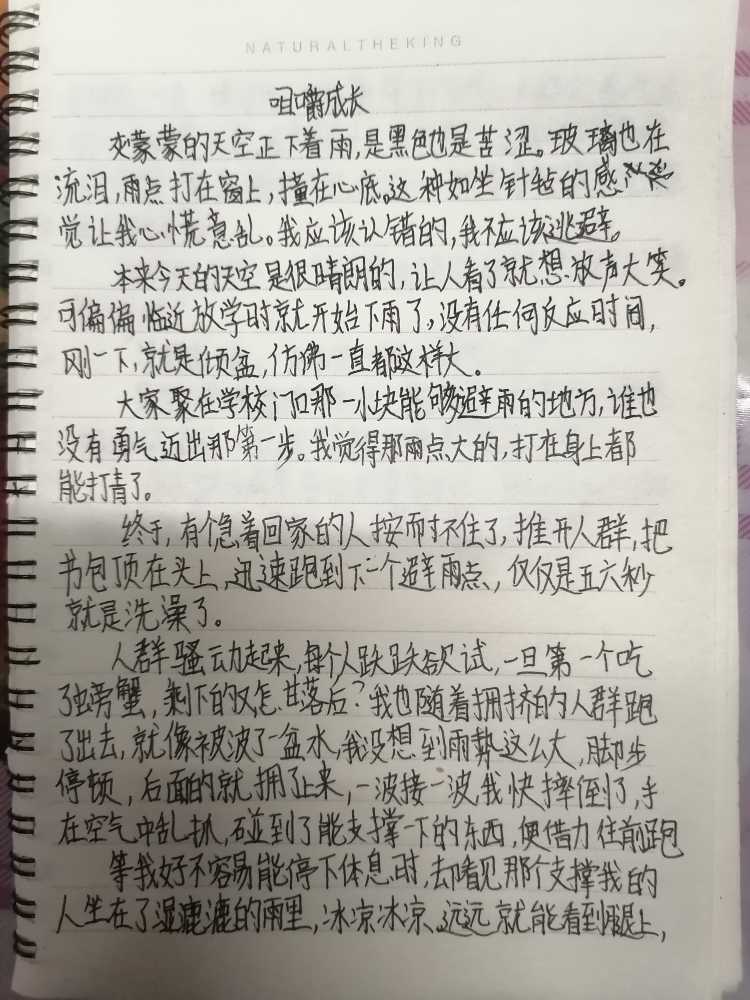 NATURALTHEKING
咀嚼成长
灰蒙蒙的天空正下着雨,是黑色也是苦涩。玻璃也在
流泪,雨点打在窗上,撞在心底。这种如坐针毡的感
觉让我心慌意乱。我应该认错的,我不应该逃避。
本来今天的天空是很晴朗的,让人看了就想放声大笑。
可偏偏临近放学时就开始下雨了,没有任何反应时间,
刚一下,就是倾盆,仿佛一直都这样大。
大家聚在学校门口那一小块能够避雨的地方,谁也
没有勇气迈出那第一步。我觉得那雨点大的,打在身上都
能打青了。
终于,有个急着回家的人按耐不住了,推开人群,把
书包顶在头上,迅速跑到下一个避雨点,仅仅是五六秒
就是洗澡了。
人群骚动起来,每个人跃跃欲试,一旦第一个吃
了螃蟹,剩下的又怎甘落后?我也随着拥挤的人群跑
了出去,就像被泼了一盆水,我没想到雨势这么大,脚步
停顿,后面的就拥了上来,一波接一波,我快摔倒了,手
在空气中乱抓,碰到了能支撑一下的东西,便借力往前跑
等我好不容易能停下休息时,却看见那个支撑我的
人坐在了湿漉漉的雨里,冰凉冰凉。远远就能看到腿上,